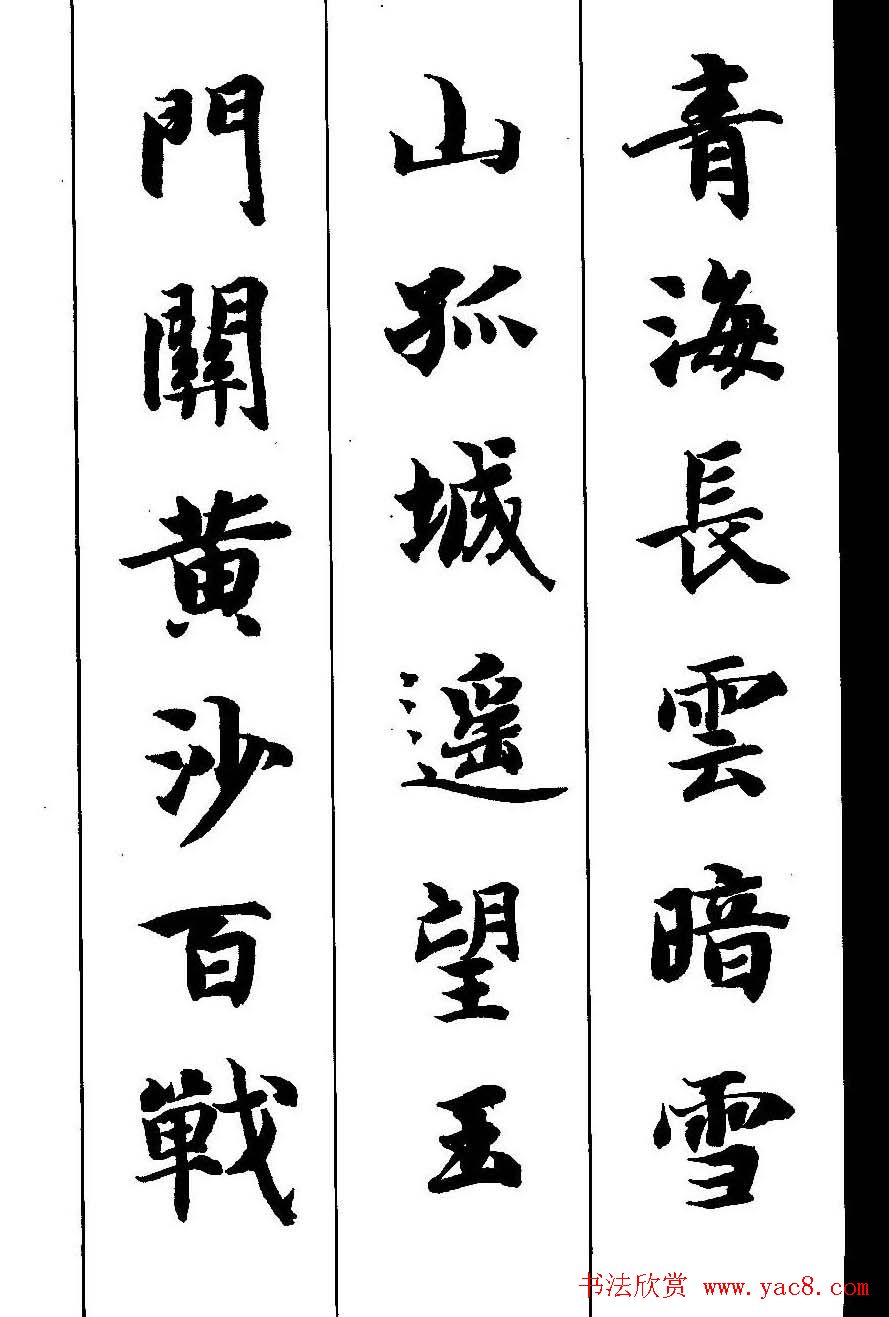 青海長雲暗雪
山孤城遥望玉
門關黄沙百戰
书法欣赏 www.yac8.com